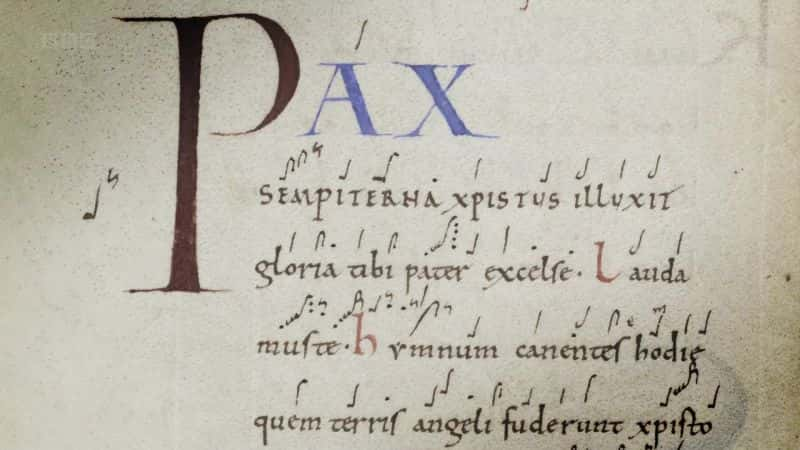 PAX
SEMPITERNA XPISTUS ILLUXIT
gloria tibi pater excelse. Lauda
muste. hymnum canentes hodie
quem terris angeli fuderunt xpisto